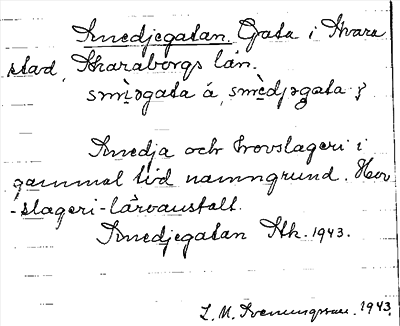 Smedjegatan. Gata i Skara
stad, Skaraborgs län.
smìəgata á, smèdjəgata ȝ
Smedja och hovslageri i
gammal tid namngrund. Hov-
-slageri-läroanstalt.
Smedjegatan Stk. 1943.
L. M. Svenungsson. 1943.